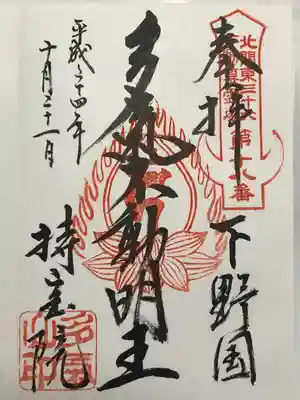 北関東三十六
不動尊霊場
第十八番
奉拝
下野国
多氣不動明王
持宝院
平成二十四年
十月三十一日